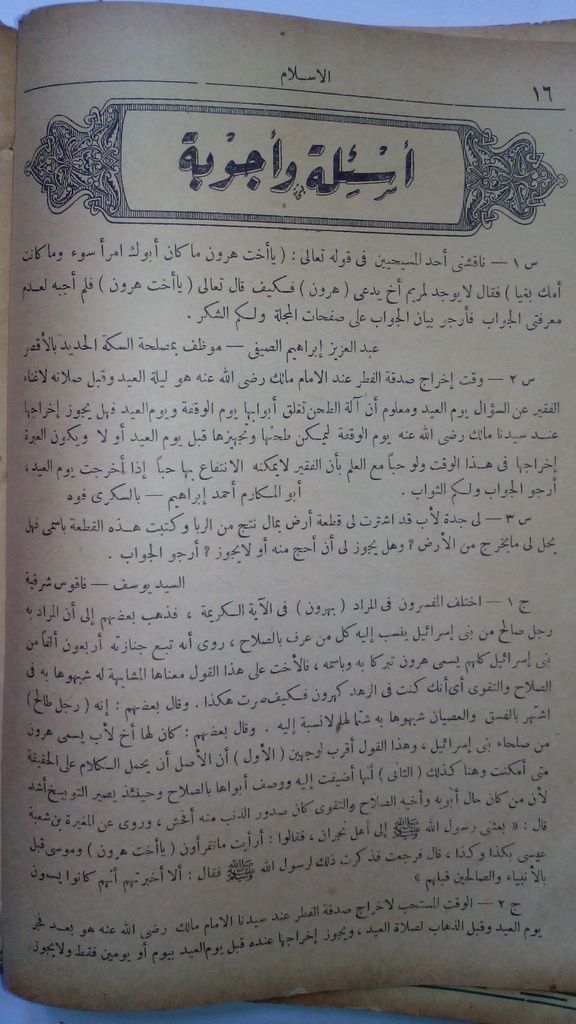 ١٦
الاسلام
أسئلة وأجوبة
س ١ — ناقشنى أحد المسيحيين فى قوله تعالى : ( ياأخت هرون ما كان أبوك امرأ سوء وما كانت
أمك بغيا ) فقال لا يوجد لمريم أخ يدعى ( هرون ) فكيف قال تعالى ( ياأخت هرون ) فلم أجبه لعدم
معرفتى الجواب فأرجو بيان الجواب على صفحات المجلة ولكم الشكر .
عبد العزيز إبراهيم الصيفى — موظف بمصلحة السكة الحديد بالأقصر
س ٢ — وقت إخراج صدقة الفطر عند الامام مالك رضى الله عنه هو ليلة العيد وقبل صلاته لاغناء
الفقير عن السؤال يوم العيد ومعلوم أن آلة الطحن تغلق أبوابها يوم الوقفة ويوم العيد فهل يجوز إخراجها
عند سيدنا مالك رضى الله عنه يوم الوقفة ليمكن طحنها وتجهيزها قبل يوم العيد أو لا ويكون العبرة
إخراجها فى هذا الوقت ولو حباً مع العلم بأن الفقير لايمكنه الانتفاع بها حباً إذا أخرجت يوم العيد ،
أرجو الجواب ولكم الثواب . أبو المكارم أحمد إبراهيم — بالسكرى فوه
س ٣ — لى جدة لأب قد اشترت لى قطعة أرض بمال نتج من الربا وكتبت هذه القطعة باسمى فهل
يحل لى مايخرج من الأرض ? وهل يجوز لى أن أحج منه أو لايجوز ? أرجو الجواب .
السيد يوسف — فاقوس شرقية
ج ١ — اختلف المفسرون فى المراد ( بهرون ) فى الآية الكريمة ، فذهب بعضهم إلى أن المراد به
رجل صالح من بنى إسرائيل ينسب إليه كل من عرف بالصلاح ، روى أنه تبع جنازته أربعون ألفاً من
بنى إسرائيل كلهم يسمى هرون تبركا به وباسمه ، فالأخت على هذا القول معناها المشابهة له شبهوها به فى
الصلاح والتقوى أى أنك كنت فى الزهد كهرون فكيف صرت هكذا . وقال بعضهم : إنه ( رجل طالح )
اشتهر بالفسق والعصيان شبهوها به شتما لها لانسبة إليه . وقال بعضهم : كان لها أخ لأب يسمى هرون
من صلحاء بنى إسرائيل ، وهذا القول أقرب لوجهين ( الأول ) أن الأصل أن يحمل الكلام على الحقيقة
متى أمكنت وهنا كذلك ( الثانى ) أنها أضيفت إليه ووصف أبواها بالصلاح وحينئذ يصير التوبيخ أشد
لأن من كان حال أبويه وأخيه الصلاح والتقوى كان صدور الذنب منه أفحش ، وروى عن المغيرة بن شعبة
قال : « بعثنى رسول الله ﷺ إلى أهل نجران ، فقالوا : أرأيت ماتقرأون ( ياأخت هرون ) وموسى قبل
عيسى بكذا وكذا ، قال فرجعت فذكرت ذلك لرسول الله ﷺ فقال : ألا أخبرتهم أنهم كانوا يسمون
بالأنبياء والصالحين قبلهم »
ج ٢ — الوقت المستحب لاخراج صدقة الفطر عند سيدنا الامام مالك رضى الله عنه هو بعد فجر
يوم العيد وقبل الذهاب لصلاة العيد ، ويجوز إخراجها عنده قبل يوم العيد بيوم أو يومين فقط ولايجوز